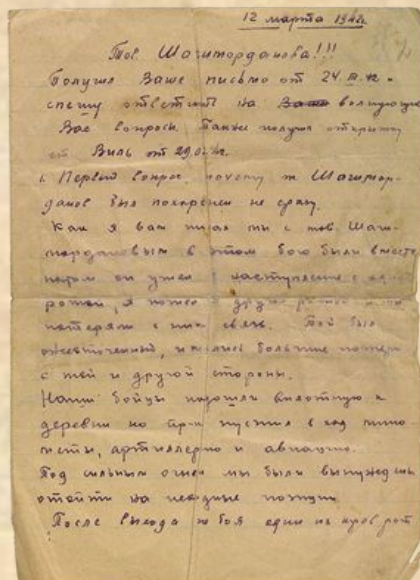 12 марта 1942г.
Тов. Шагимарданова!!!
Получил Ваше письмо от 24. 42 и
спешу ответить на волнующие
Вас вопросы. Также получил открытку
от Виль от
1. Первый вопрос, почему т. Шагимор-
данов был похоронен не сразу.
Как я Вам писал мы с тов. Шаги-
мордановым в этом бою были вместе
потом он ушел в наступление с одной
ротой, я пошел с другой ротой и мы
потеряли с ним связь. Бой был
ожесточенный, имелись большие потери
с той и другой стороны.
Наши бойцы подошли вплотную к
деревни но пр-к пустил в ход мино
меты, артиллерию и авиацию.
Под сильным огнем мы были вынуждены
отойти на исходные позиции.
После выхода из боя один из к-ров рот